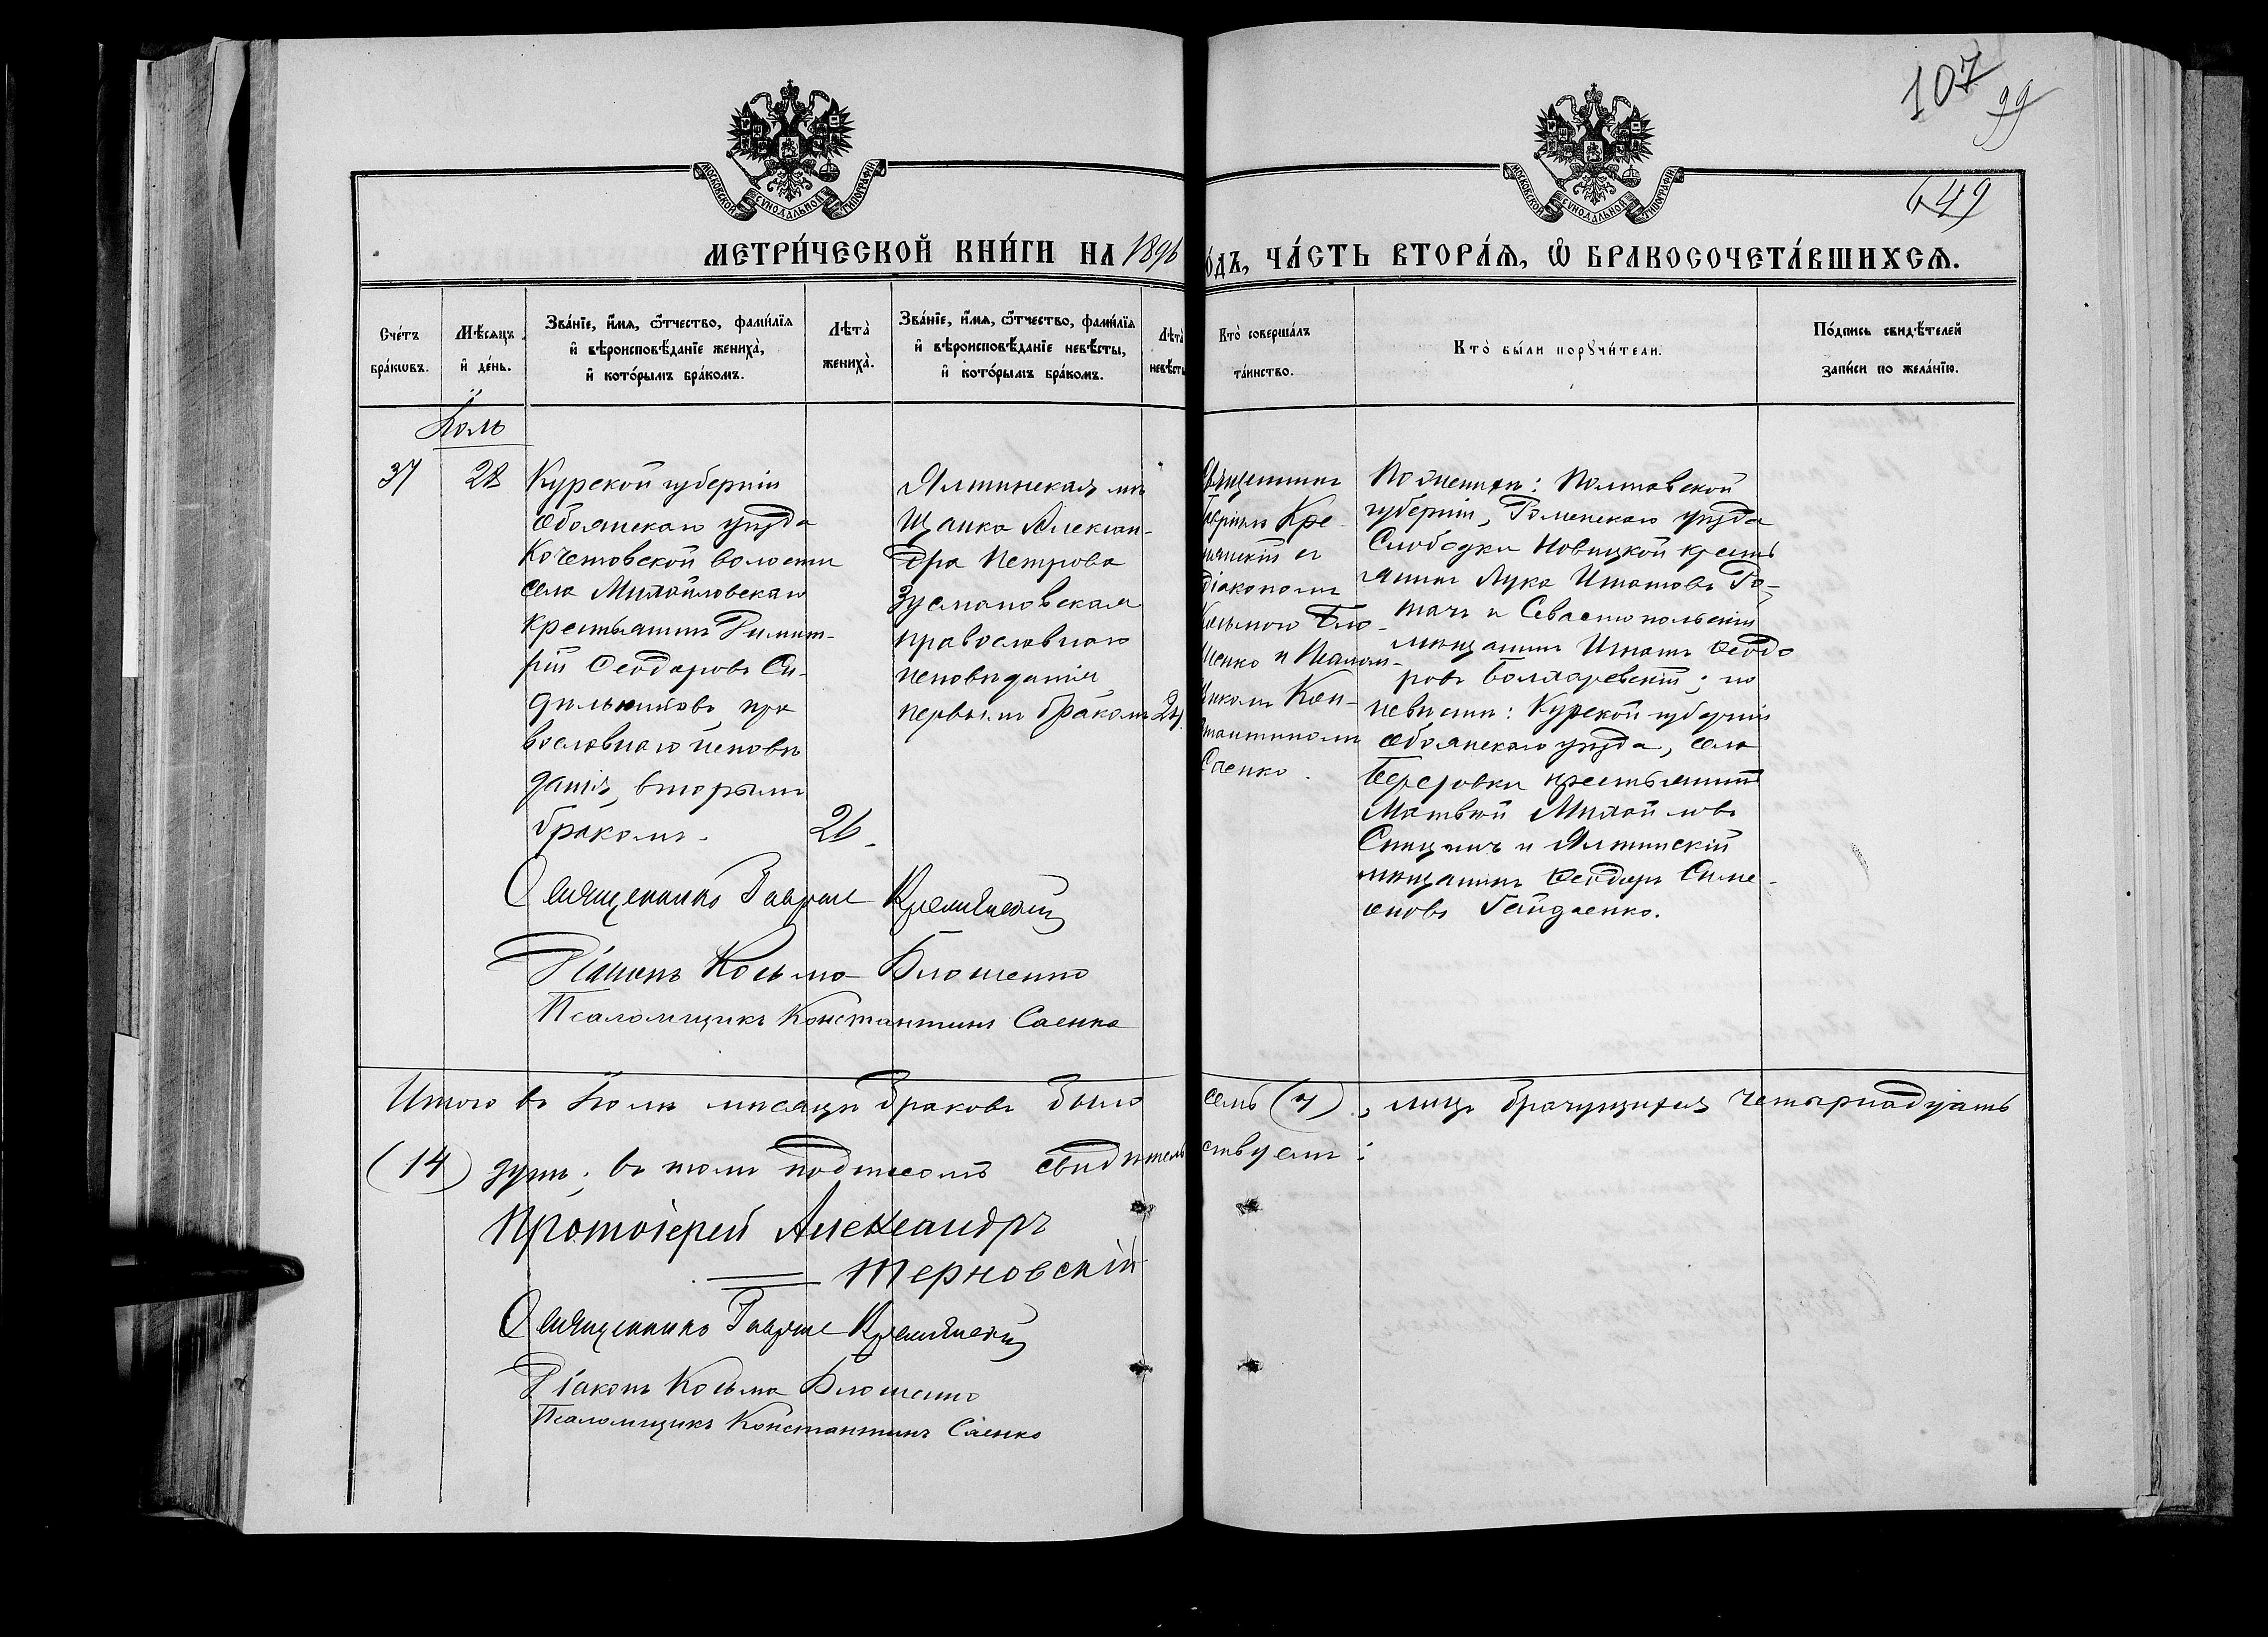 107
99
649
МОСКОВСКОЙ СѴНОДАЛЬНОЙ ТИПОГРАФІИ
МОСКОВСКОЙ СѴНОДАЛЬНОЙ ТИПОГРАФІИ
МЕТРИ́ЧЕСКОЙ КНИ́ГИ НА 1896
О́ДЪ, ЧА́СТЬ ВТОРА́Ѧ, Ѽ БРАКОСОЧЕТА́ВШИХСѦ.
Сче́тъ
бра́кѡвъ.
Мѣ́сяцъ
и҆ де́нь.
Зва́нїе, и҆́мѧ, ѻ҆́тчество, фами́лїѧ
и҆ вѣроисповѣ́данїе жениха̀,
и҆ кото́рымъ бра́комъ.
Лѣта̀
жениха̀.
Зва́нїе, и҆́мѧ, ѻ҆́тчество, фами́лїѧ
и҆ вѣроисповѣ́данїе невѣ́сты,
и҆ кото́рымъ бра́комъ.
Лѣта̀
невѣ́сты
Кто̀ соверша́лъ
та́инство.
Кто̀ бы́ли порꙋчи́тели.
По́дпись свидѣ́телей
за́писи по жела́нїю.
Іюль
37
28
Курской губерніи
Обоянскаго уѣзда
Кочетовской волости
села Михайловскаго
крестьянинъ Димит-
рій Ѳеодоровъ Си-
дѣльниковъ, пра
вославнаго исповѣ
данія, вторымъ
бракомъ.
26
Ялтинская мѣ
щанка Алексан-
дра Петрова
православнаго
исповѣданія
первымъ бракомъ
24
Священникъ
Гавріилъ Кре-
мянскій съ
діакономъ
Косьмою Бло-
шенко и Псалом-
щикомъ Кон-
стантиномъ
Саенко.
По женихѣ: Полтавской
губерніи, Роменскаго уѣзда
Слободки Новицкой кресть
янинъ Лука Игнатовъ
и Севастопольскій
мѣщанинъ Игнатъ Ѳеодо
ровъ Болтаревскій; по
невѣстѣ: Курской губерніи
Обоянскаго уѣзда, села
Бересовки крестьянинъ
Матвѣй Михайловъ
Спицынъ и Ялтинскій
мѣщанинъ Ѳеодоръ Симе-
оновъ Гайдаенко.
Священникъ Гавріилъ Кремянскій
Діаконъ Косьма Блошенко
Псаломщикъ Константинъ Саенко
Итого въ Іюлѣ мѣсяцѣ браковъ было семь (7), лицъ брачущихся четырнадцать
(14) душъ; въ томъ подписомъ свидѣтельствуемъ:
Протоіерей Александръ
Терновскій
Священникъ Гавріилъ Кремянскій
Діаконъ Косьма Блошенко
Псаломщикъ Константинъ Саенко